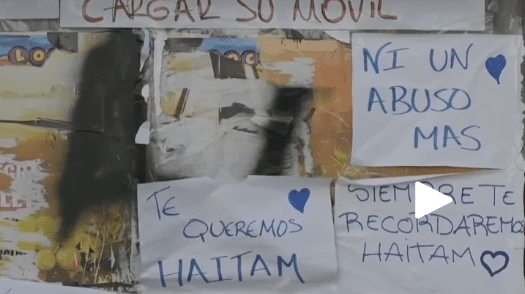 CARGAR SU MOVIL
NI UN
ABUSO
MAS
TE
QUEREMOS
HAITAM
SIEMPRE TE
RECORDAREMOS
HAITAM